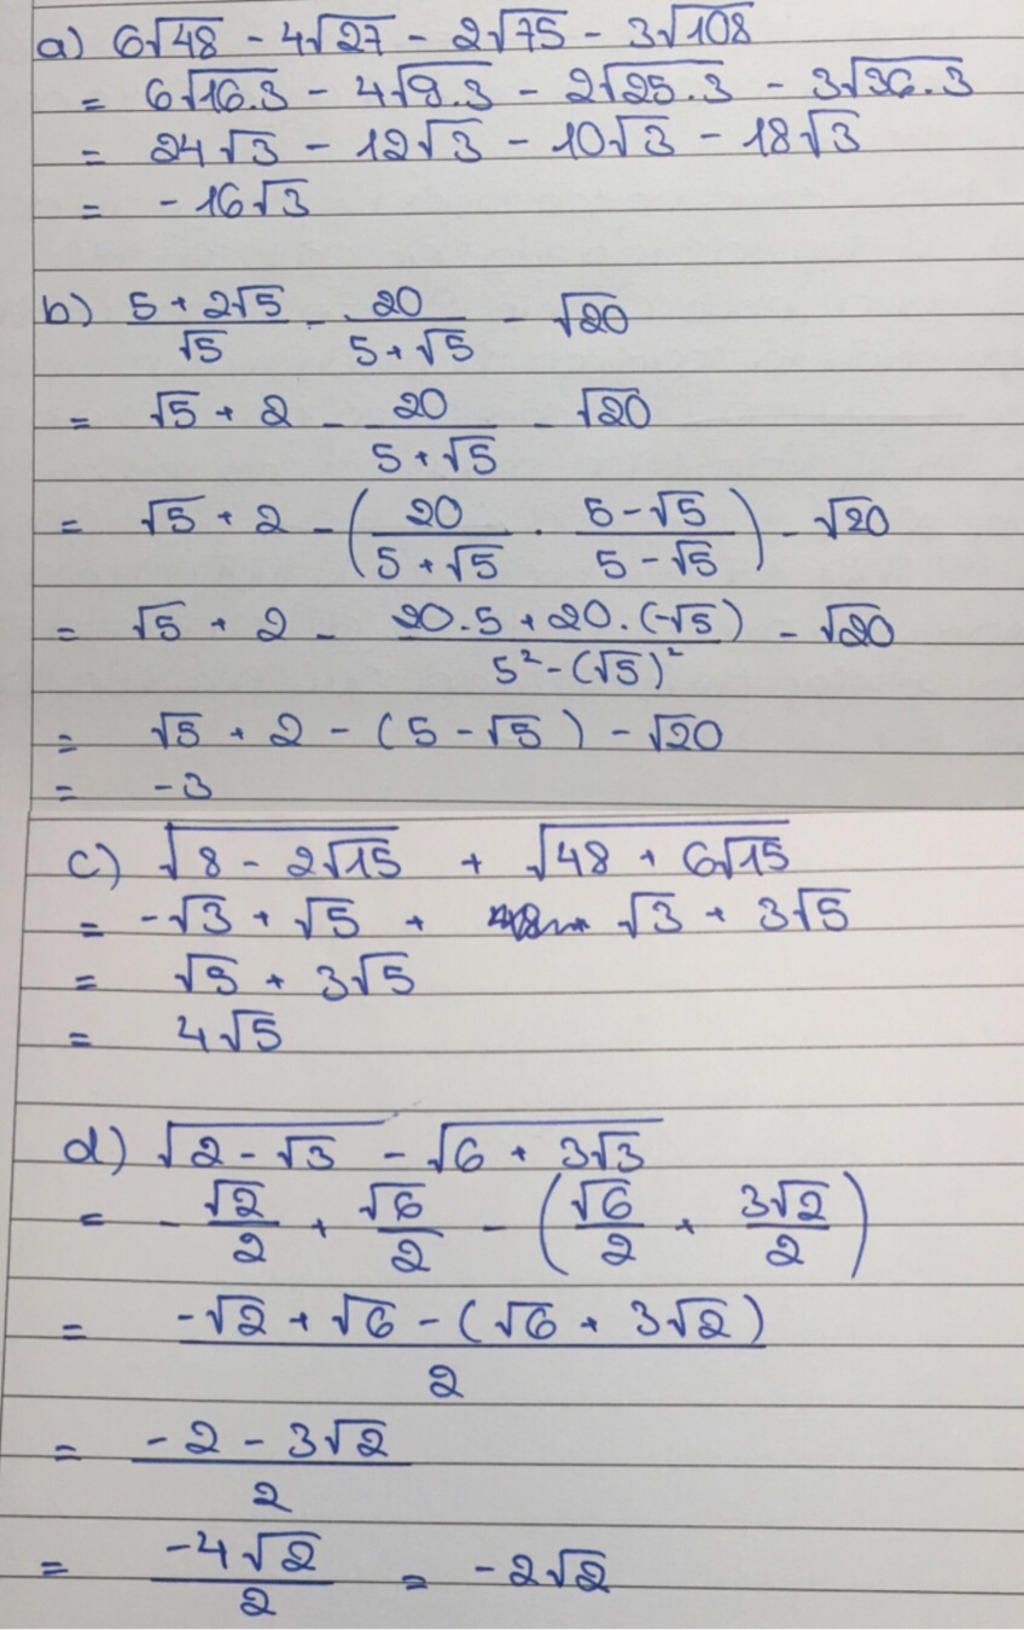 a) 6√48 - 4√27 - 2√75 - 3√108
= 6√16.3 - 4√9.3 - 2√25.3 - 3√36.3
= 24√3 - 12√3 - 10√3 - 18√3
= -16√3
b) (5 + 2√5)/√5 - 20/(5+√5) - √20
= √5 + 2 - 20/(5+√5) - √20
= √5 + 2 - (20/(5+√5) . (5-√5)/(5-√5)) - √20
= √5 + 2 - (20.5 + 20.(-√5))/(5² - (√5)²) - √20
= √5 + 2 - (5 - √5) - √20
= -3
c) √(8 - 2√15) + √(48 + 6√15)
= -√3 + √5 + √3 + 3√5
= √5 + 3√5
= 4√5
d) √(2 - √3) - √(6 + 3√3)
= -√2/2 + √6/2 - (√6/2 + 3√2/2)
= (-√2 + √6 - (√6 + 3√2))/2
= (-2 - 3√2)/2
= -4√2/2 = -2√2